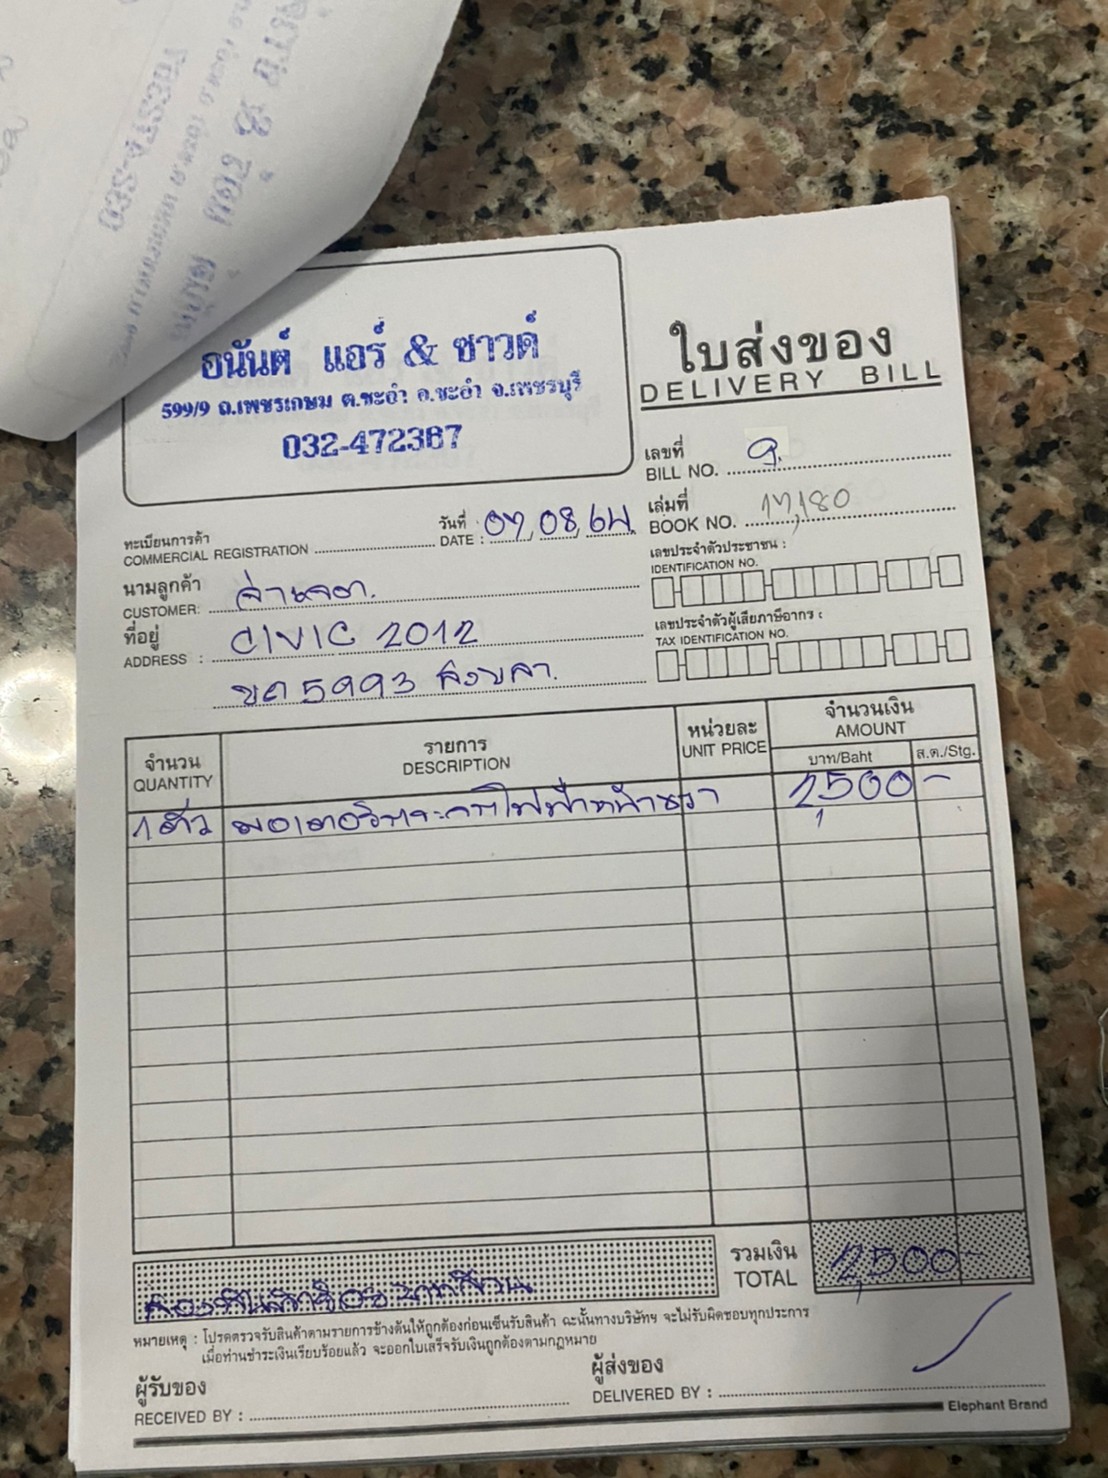 อนันต์ แอร์ & ซาวด์
599/9 ถ.เพชรเกษม ต.ชะอำ อ.ชะอำ จ.เพชรบุรี
032-472367
ใบส่งของ
DELIVERY BILL
เลขที่
BILL NO. 9.
เล่มที่
BOOK NO. 17,180
ทะเบียนการค้า
COMMERCIAL REGISTRATION
วันที่
DATE : 07,08,64
เลขประจำตัวประชาชน :
IDENTIFICATION NO.
นามลูกค้า
CUSTOMER:
เลขประจำตัวผู้เสียภาษีอากร :
TAX IDENTIFICATION NO.
ที่อยู่
ADDRESS : CIVIC 2012
ขต 5993 สงขลา.
จำนวน
QUANTITY
รายการ
DESCRIPTION
หน่วยละ
UNIT PRICE
จำนวนเงิน
AMOUNT
บาท/Baht
ส.ต./Stg.
1 ตัว มอเตอร์ กระจกไฟฟ้าหน้าขวา 2,500 -
สองพันห้าร้อยบาทถ้วน
รวมเงิน
TOTAL 2,500 -
หมายเหตุ : โปรดตรวจรับสินค้าตามรายการข้างต้นให้ถูกต้องก่อนเซ็นรับสินค้า ฉะนั้นทางบริษัทฯ จะไม่รับผิดชอบทุกประการ
เมื่อท่านชำระเงินเรียบร้อยแล้ว จะออกใบเสร็จรับเงินถูกต้องตามกฎหมาย
ผู้รับของ
RECEIVED BY :
ผู้ส่งของ
DELIVERED BY :
Elephant Brand